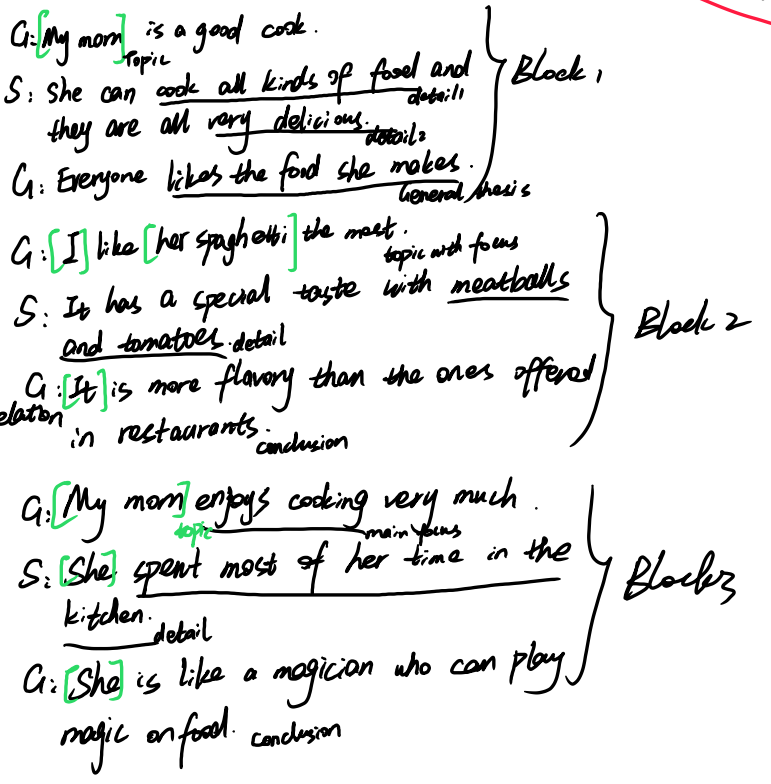 G: [My mom] is a good cook.
Topic
S: She can cook all kinds of food and
detail1
they are all very delicious.
detail2
G: Everyone likes the food she makes.
General thesis
Block 1
G: [I] like [her spaghetti] the most.
topic with focus
S: It has a special taste with meatballs
and tomatoes. detail
G: [It] is more flavory than the ones offered
elation
in restaurants. conclusion
Block 2
G: [My mom] enjoys cooking very much.
topic
main focus
S: [She] spent most of her time in the
kitchen. detail
G: [She] is like a magician who can play
magic on food. conclusion
Block 3